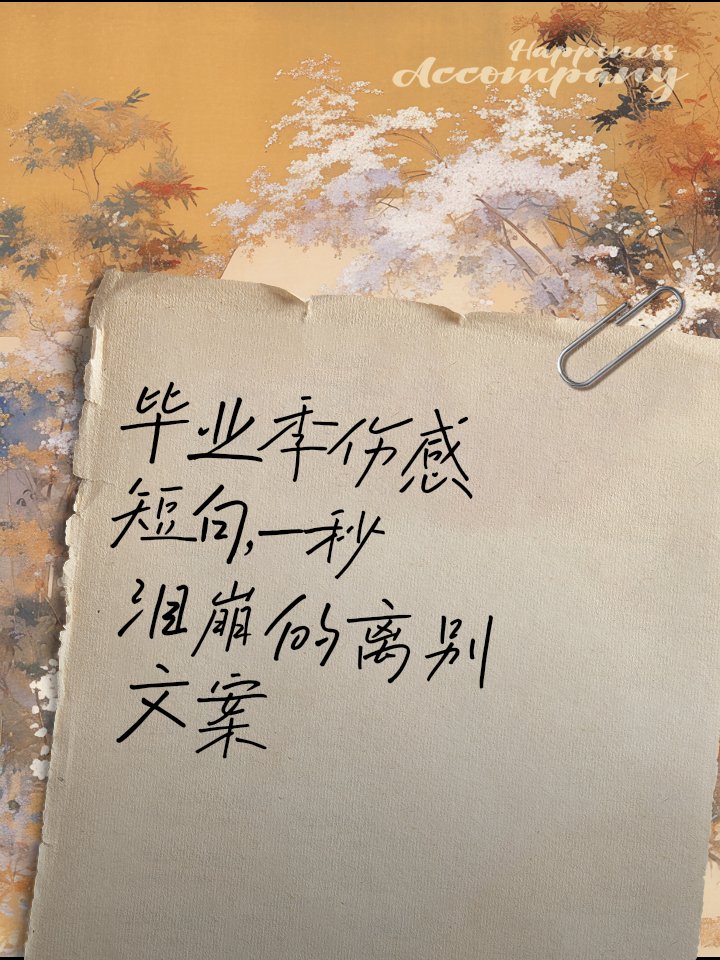 Happiness
Accompany
毕业季伤感
短句,一秒
泪崩的离别
文案